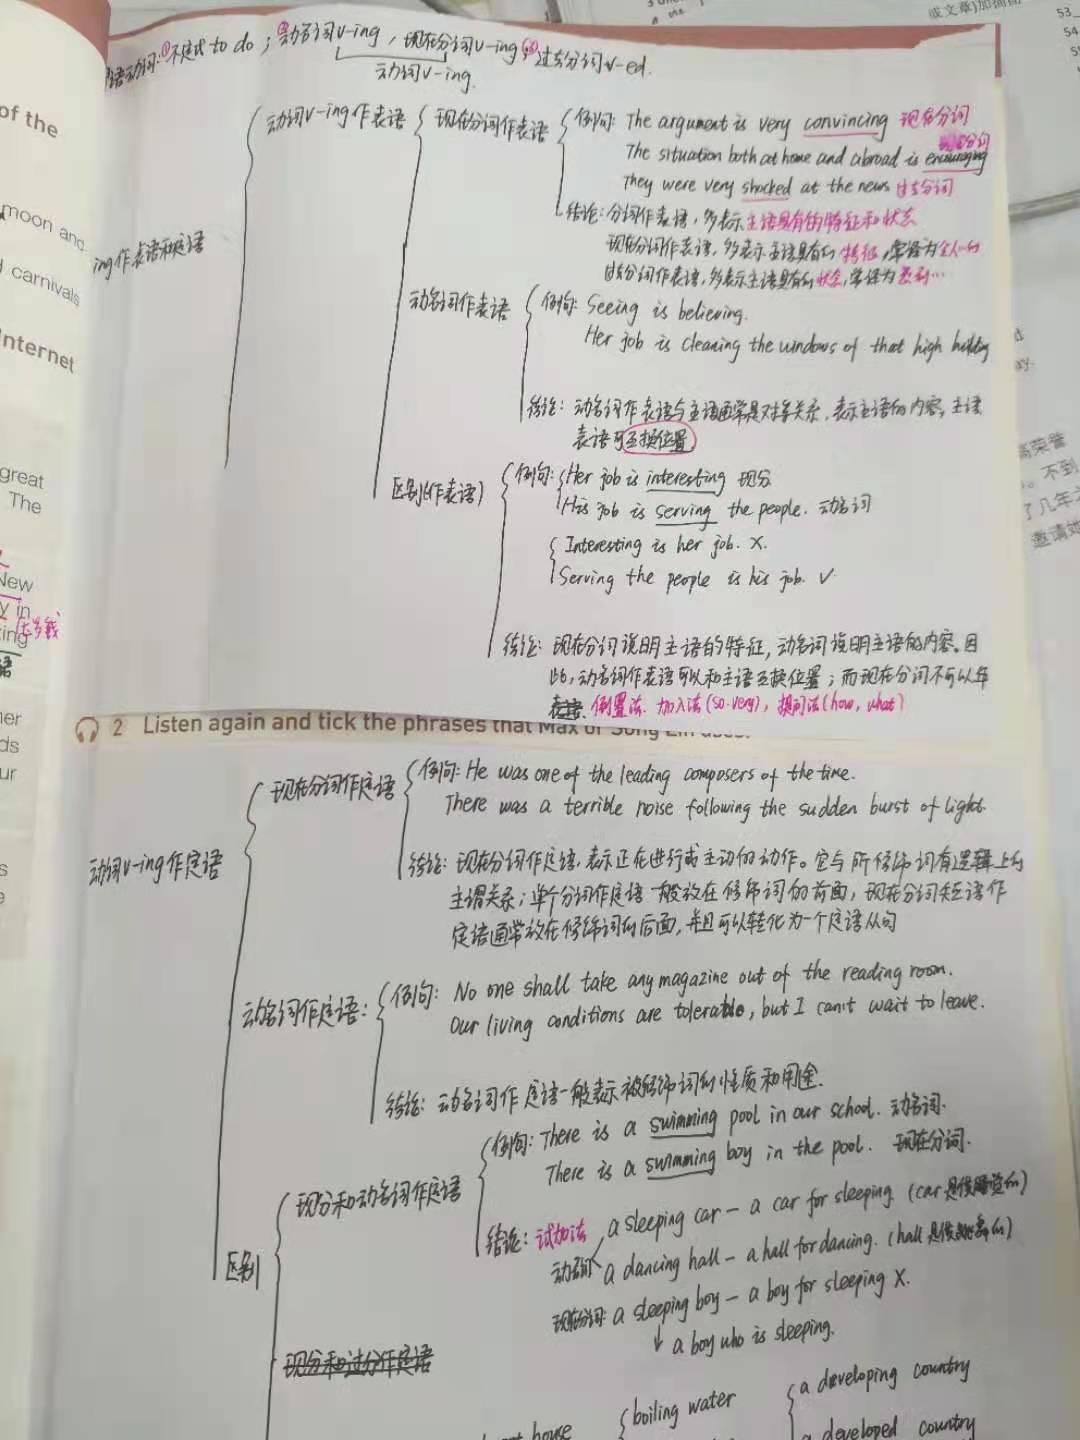 语动词:①不定式 to do;②动名词v-ing,现在分词v-ing;③过去分词v-ed.
动词v-ing
ing作表语和定语
动词v-ing作表语
现在分词作表语
例句: The argument is very convincing 现在分词
The situation both at home and abroad is encouraging 分词
They were very shocked at the news 过去分词
结论:分词作表语,多表示主语具有的特征和状态
现在分词作表语,多表示主语具有的特征,常译为令人…的
过去分词作表语,多表示主语具有的状态,常译为感到…
动名词作表语
例句: Seeing is believing.
Her job is cleaning the windows of that high building
结论: 动名词作表语与主语通常是对等关系,表示主语的内容,主语
表语可互换位置.
区别(作表语)
例句: Her job is interesting 现分
His job is serving the people. 动名词
Interesting is her job. ×.
Serving the people is his job. √
结论: 现在分词说明主语的特征,动名词说明主语的内容。因
此,动名词作表语可以和主语互换位置;而现在分词不可以
倒置法. 加入法(so.very), 提问法(how, what)
2 Listen again and tick the phrases that Max or Song Lin uses.
动词v-ing作定语
现在分词作定语
例句: He was one of the leading composers of the time.
There was a terrible noise following the sudden burst of light.
结论: 现在分词作定语,表示正在进行或主动的动作。它与所修饰词有逻辑上的
主谓关系;单个分词作定语一般放在修饰词的前面,现在分词短语作
定语通常放在修饰词的后面,并且可以转化为一个定语从句
动名词作定语:
例句: No one shall take any magazine out of the reading room.
Our living conditions are tolerable, but I can't wait to leave.
结论: 动名词作定语一般表示被修饰词的性质和用途.
区别
现分和动名词作定语
例句: There is a swimming pool in our school. 动名词.
There is a swimming boy in the pool. 现在分词.
结论: 试加法
动名词
a sleeping car - a car for sleeping (car 是供睡觉的)
a dancing hall - a hall for dancing. (hall 是供跳舞的)
现在分词: a sleeping boy - a boy for sleeping ×.
↓ a boy who is sleeping.
现分和过分作定语
house
boiling water
a developing country
a developed country
of the
moon and
carnivals
Internet
great
The
New
y in
king
ner
ds
ur
或文章)加插图
53
54
高荣誉
。不到
了几年
邀请她